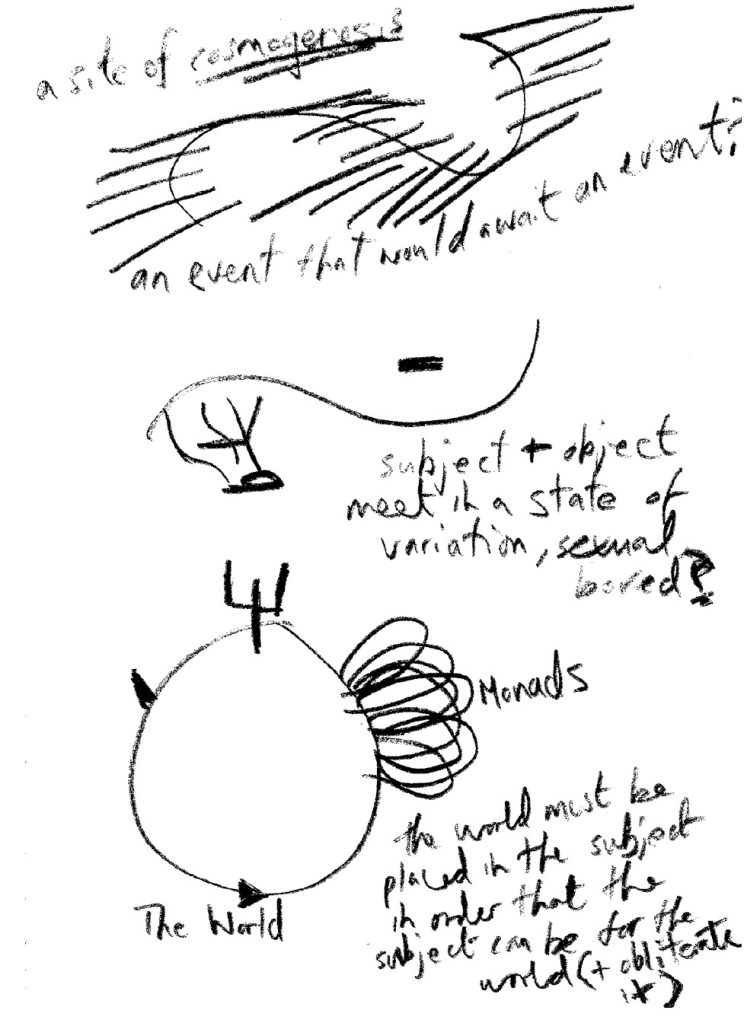 a site of cosmogenesis
an event that would await an event?
subject + object
meet in a state of
variation, sexual,
bored?
Monads
The World
the world must be
placed in the subject
in order that the
subject can be for the
world (+ obliterate
it)